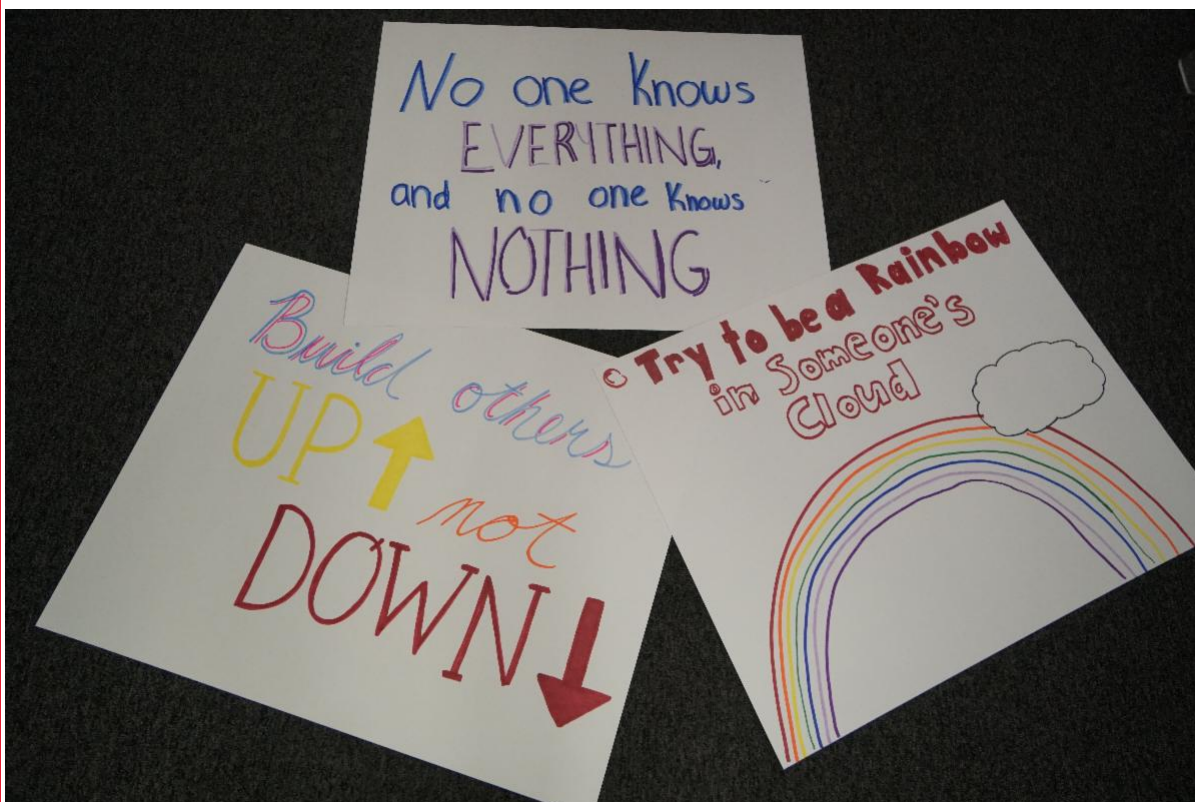 No one Knows
EVERYTHING,
and no one Knows
NOTHING
Build others
UP
not
DOWN
Try to be a Rainbow
in Someone's
Cloud